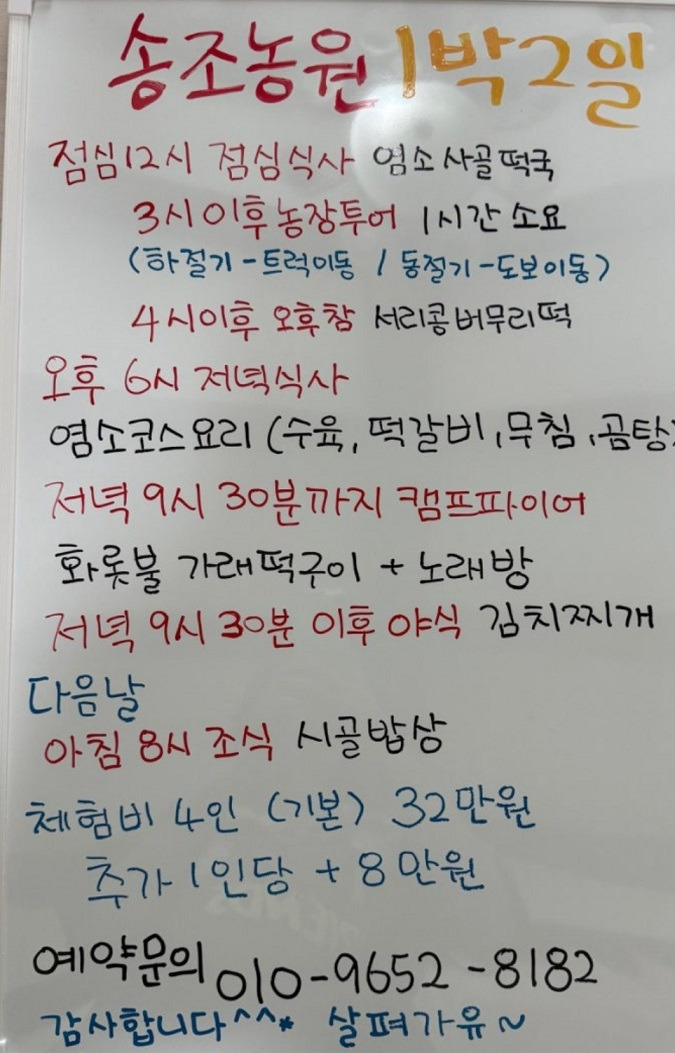 송조농원 1박2일
점심12시 점심식사 염소사골떡국
3시이후 농장투어 1시간 소요
(하절기-트럭이동 / 동절기-도보이동)
4시이후 오후참 서리콩버무리떡
오후 6시 저녁식사
염소코스요리 (수육, 떡갈비, 무침, 곰탕)
저녁 9시 30분까지 캠프파이어
화롯불 가래떡구이 + 노래방
저녁 9시 30분 이후 야식 김치찌개
다음날
아침 8시 조식 시골밥상
체험비 4인 (기본) 32만원
추가 1인당 + 8만원
예약문의 010-9652-8182
감사합니다^^* 살펴가유~